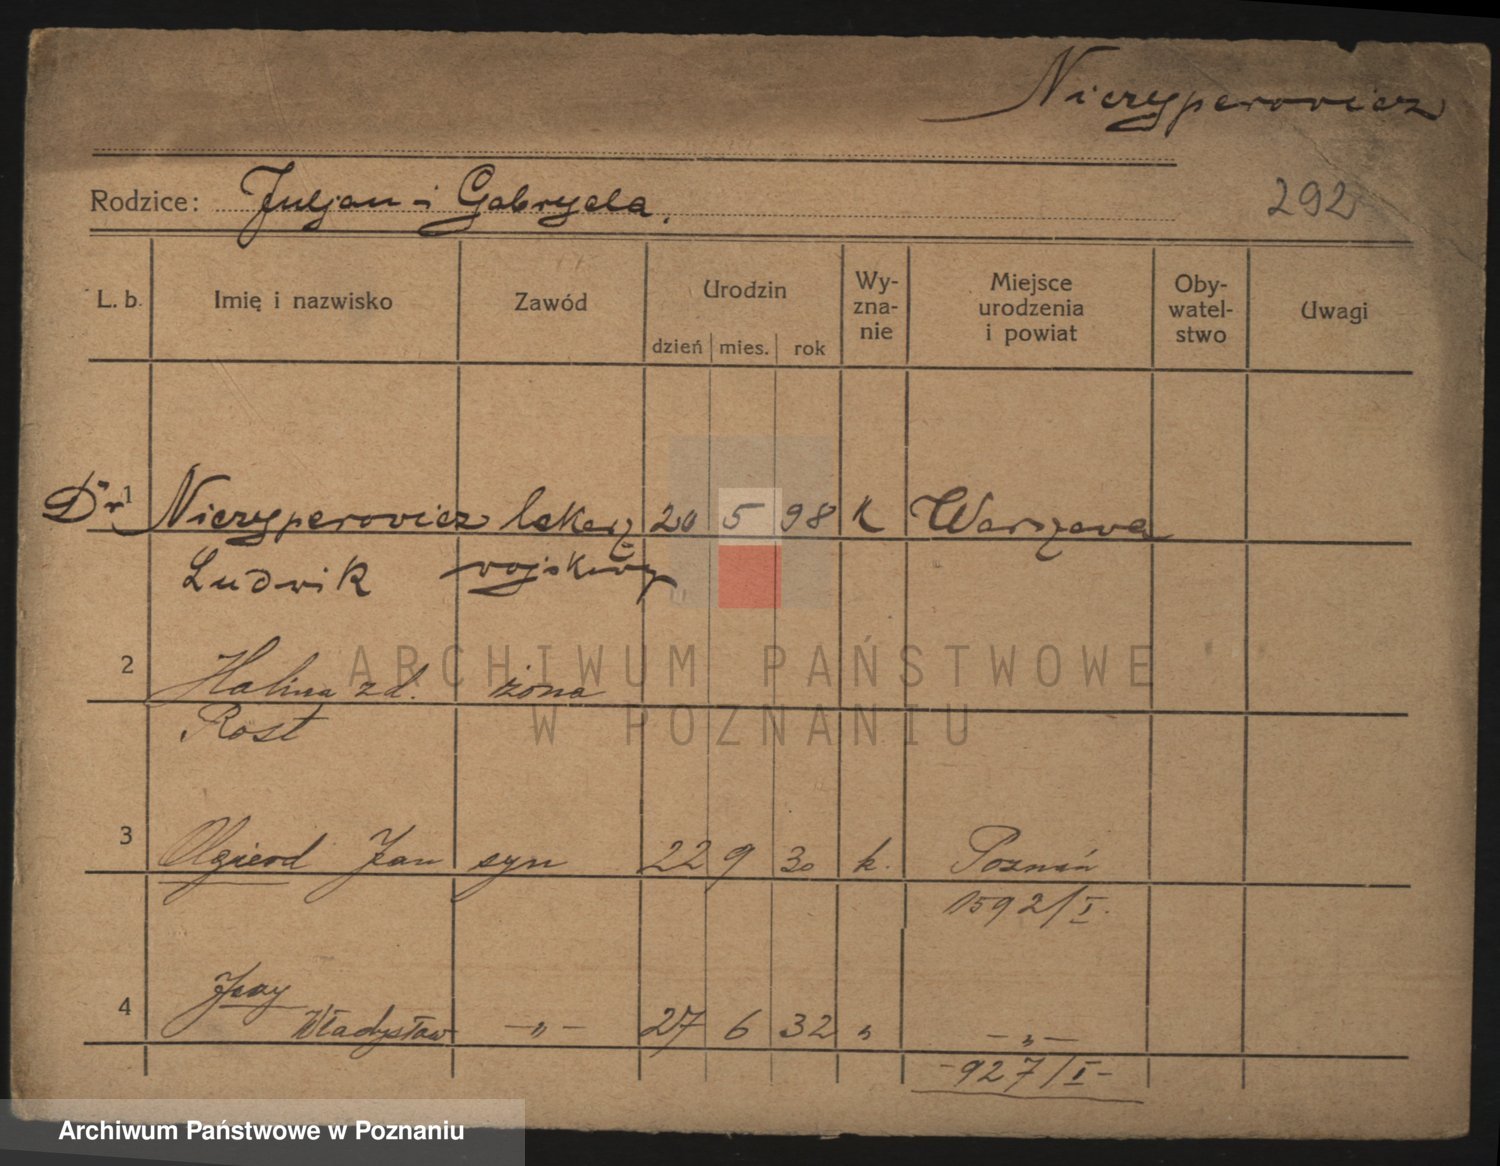 Niczyperowicz
Rodzice: Juljan i Gabryela.
292
L. b. Imię i nazwisko Zawód Urodzin dzień mies. rok Wy-zna-nie Miejsce urodzenia i powiat Oby-watel-stwo Uwagi
Dr 1 Niczyperowicz lekarz 20 5 98 k Warszawa
Ludwik wojskowy
2 Halina zd. żona
Rost
3 Olgierd Jan syn 22 9 30 k. Poznań
1592/I.
Jerzy
4 Władysław -„- 27 6 32 „ -„-
-927/I-
ARCHIWUM PAŃSTWOWE
W POZNANIU
Archiwum Państwowe w Poznaniu